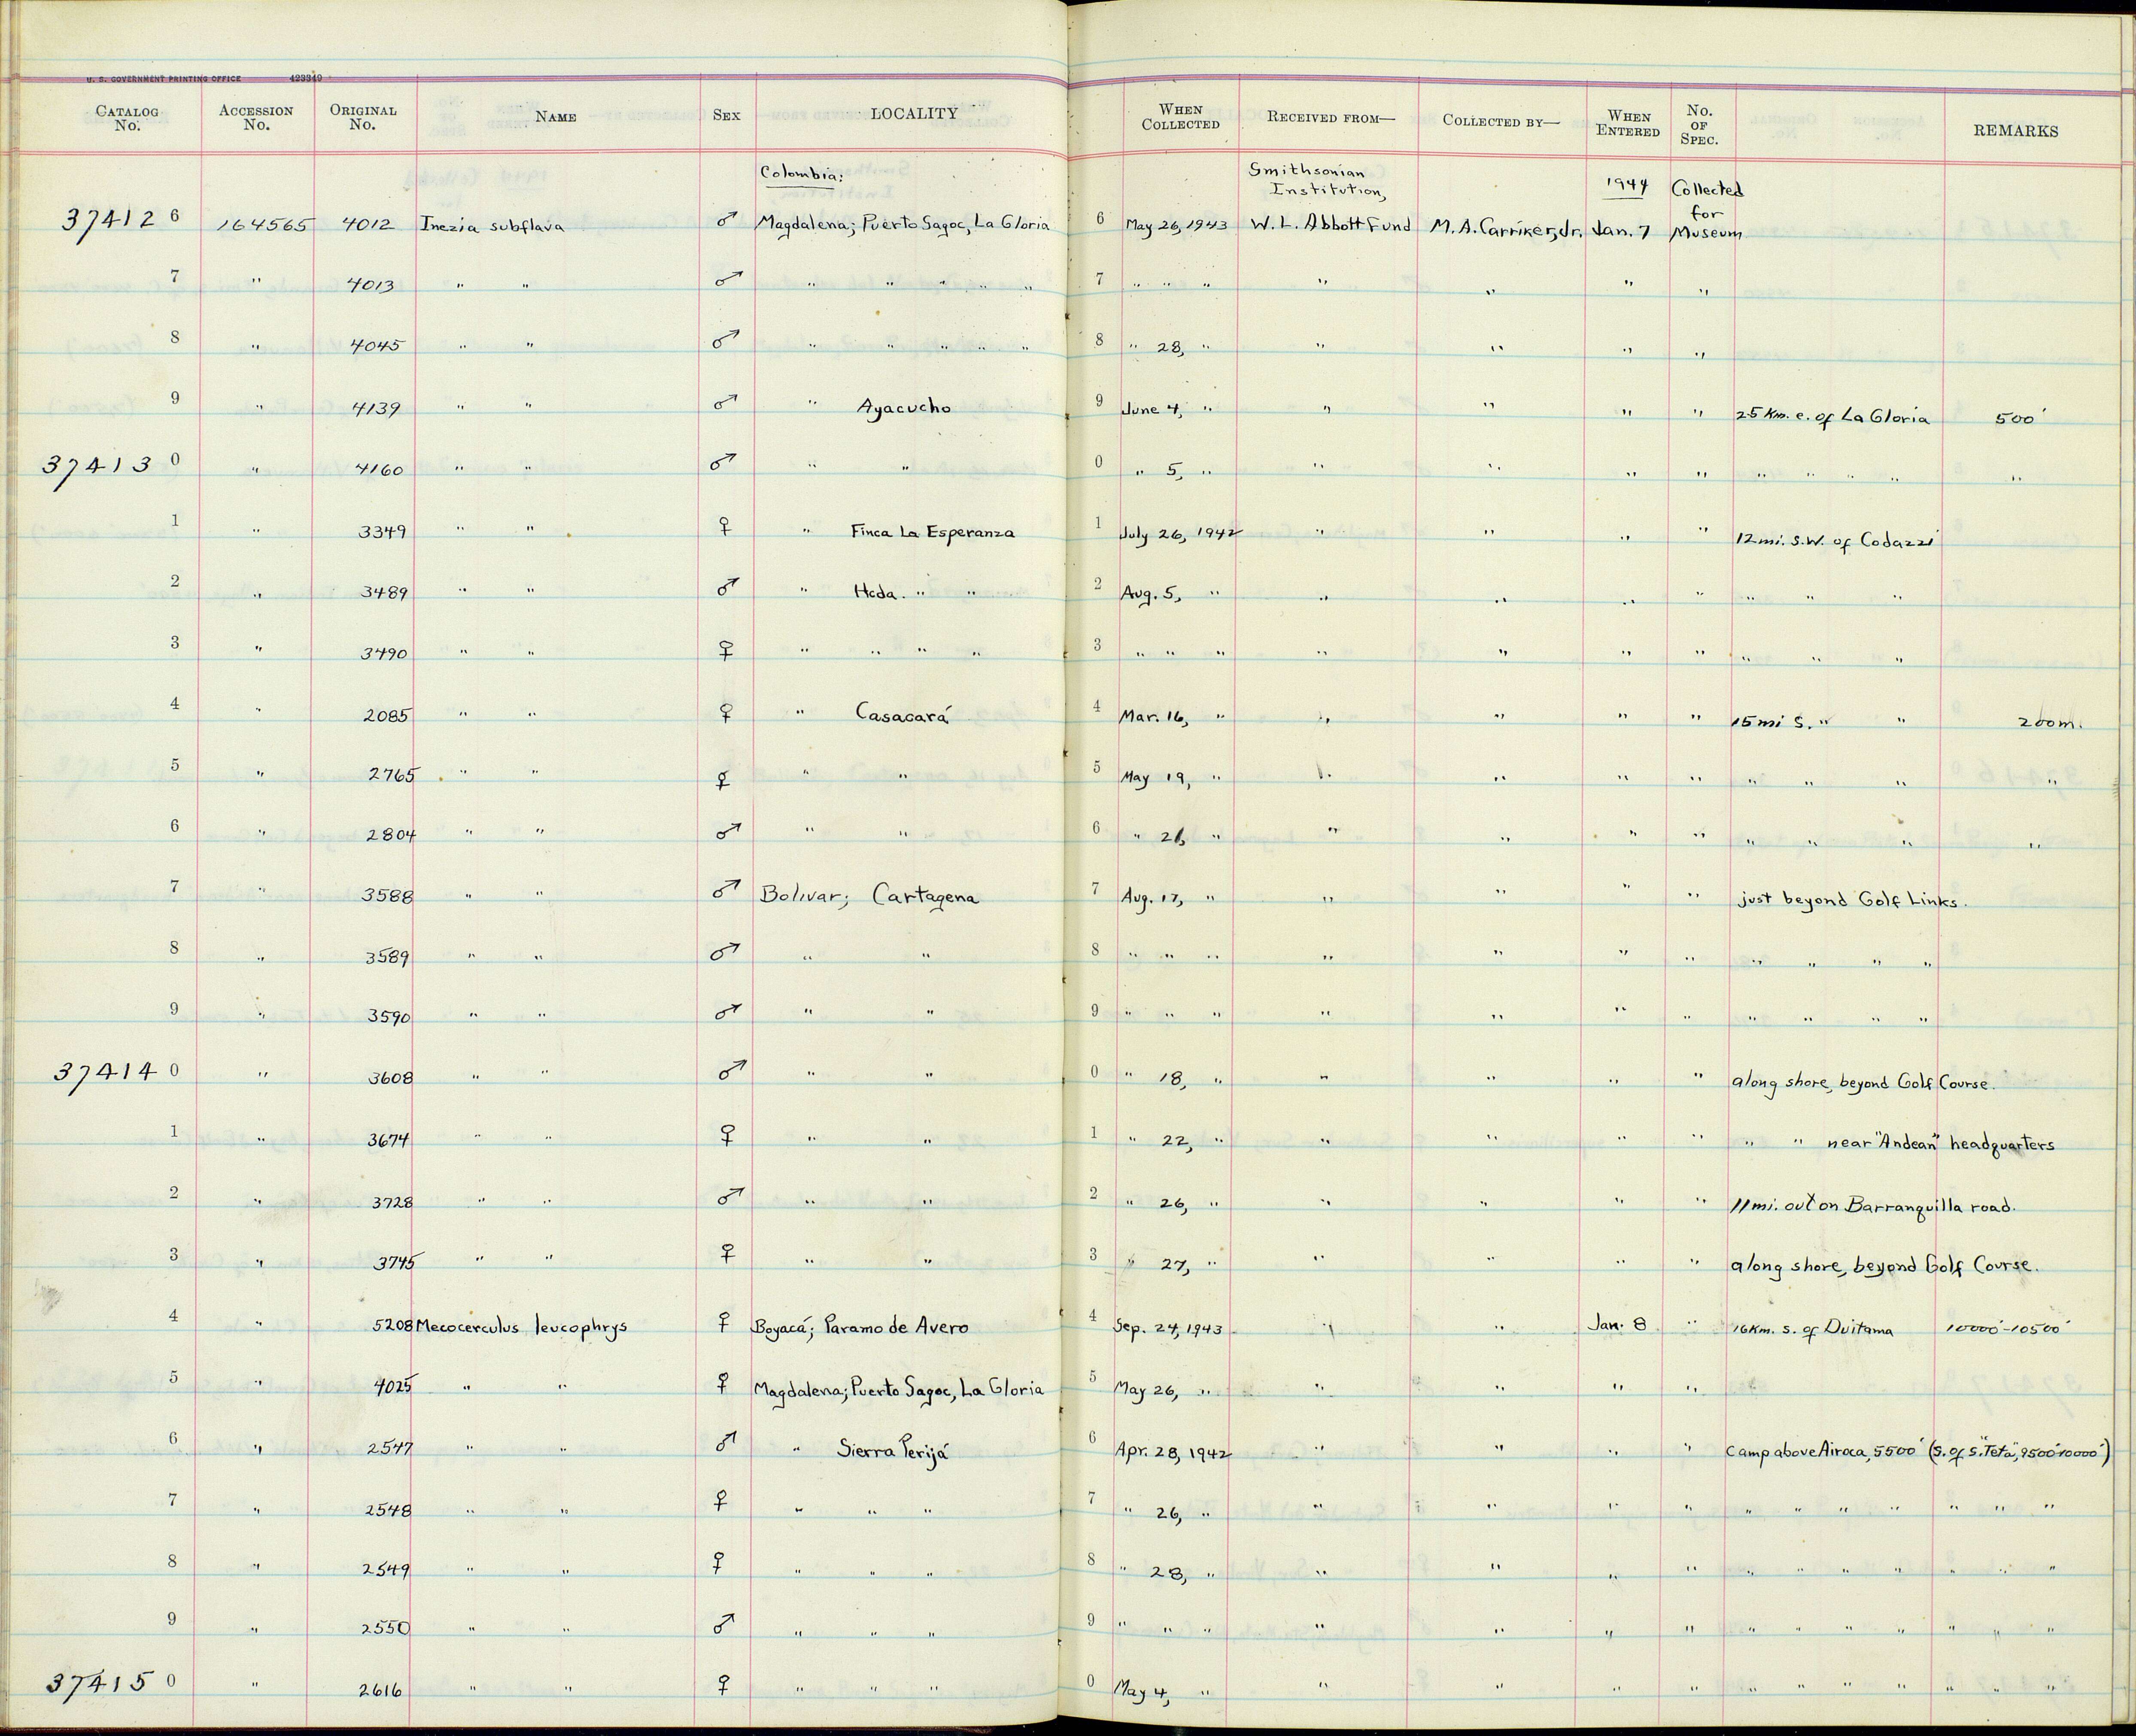 U. S. GOVERNMENT PRINTING OFFICE 423340
CATALOG No. ACCESSION No. ORIGINAL No. NAME SEX LOCALITY WHEN COLLECTED RECEIVED FROM— COLLECTED BY— WHEN ENTERED No. OF SPEC. REMARKS
Colombia: Smithsonian Institution, 1944 Collected for
37412 6 164565 4012 Inezia subflava ♂ Magdalena; Puerto Sagoc, La Gloria 6 May 26, 1943 W. L. Abbott Fund M. A. Carriker, Jr. Jan. 7 Museum
7 " 4013 " " ♂ " " " " " 7 " " " " " " "
8 " 4045 " " ♂ " " " " " 8 " 28, " " " " "
9 " 4139 " " ♂ " Ayacucho 9 June 4, " " " " " 25 Km. e. of La Gloria 500'
37413 0 " 4160 " " ♂ " " 0 " 5, " " " " " " " " " "
1 " 3349 " " ♀ " Finca La Esperanza 1 July 26, 1942 " " " " 12 mi. S.W. of Codazzi
2 " 3489 " " ♂ " Hcda. " " 2 Aug. 5, " " " " " " " "
3 " 3490 " " ♀ " " " " 3 " " " " " " " " " "
4 " 2085 " " ♀ " Casacará 4 Mar. 16, " " " " " 15 mi S. " " 200 m.
5 " 2765 " " ♀ " " 5 May 19, " " " " " " " " "
6 " 2804 " " ♂ " " 6 " 21, " " " " " " " " "
7 " 3588 " " ♂ Bolivar; Cartagena 7 Aug. 17, " " " " " just beyond Golf Links.
8 " 3589 " " ♂ " " 8 " " " " " " " " " " "
9 " 3590 " " ♂ " " 9 " " " " " " " " " " "
37414 0 " 3608 " " ♂ " " 0 " 18, " " " " " along shore, beyond Golf Course.
1 " 3674 " " ♀ " " 1 " 22, " " " " " " " near "Andean" headquarters
2 " 3728 " " ♂ " " 2 " 26, " " " " " 11 mi. out on Barranquilla road.
3 " 3745 " " ♀ " " 3 " 27, " " " " " along shore, beyond Golf Course.
4 " 5208 Mecocerculus leucophrys ♀ Boyacá; Paramo de Avero 4 Sep. 24, 1943 " " Jan. 8 " 16 Km. S. of Duitama 10000'-10500'
5 " 4025 " " ♀ Magdalena; Puerto Sagoc, La Gloria 5 May 26, " " " " "
6 " 2547 " " ♂ " Sierra Perijá 6 Apr. 28, 1942 " " " " Camp above Airoca, 5500' (S. of S. "Teta", 9500'-10000')
7 " 2548 " " ♀ " " " 7 " 26, " " " " " " " " " " " "
8 " 2549 " " ♀ " " " 8 " 28, " " " " " " " " " " " "
9 " 2550 " " ♂ " " " 9 " " " " " " " " " " " " " "
37415 0 " 2616 " " ♀ " " " 0 May 4, " " " " " " " " " " " "